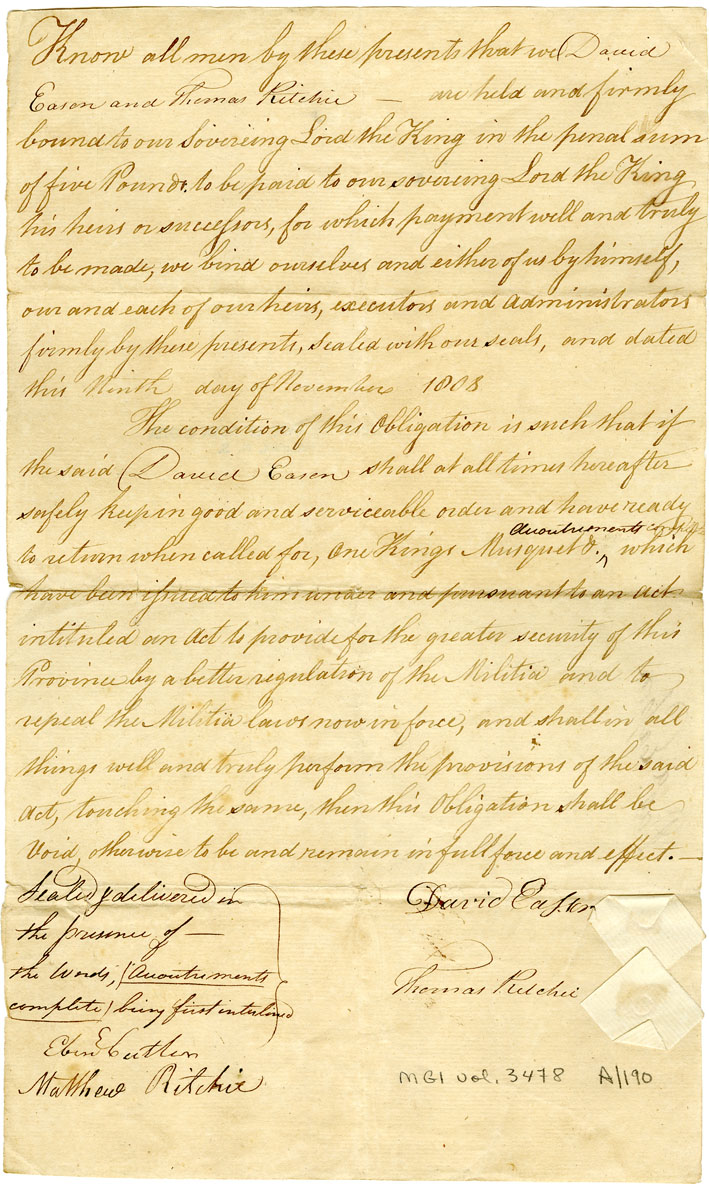 Know all men by these presents that we David
Eason and Thomas Ritchie — are held and firmly
bound to our Sovereing Lord the King in the penal sum
of five Pounds. to be paid to our sovereing Lord the King
his heirs or successors, for which payment well and truly
to be made, we bind ourselves and either of us by himself,
our and each of our heirs, executors and administrators
firmly by these presents, sealed with our seals, and dated
this Ninth day of November 1808
The condition of this Obligation is such that if
the said David Eason shall at all times hereafter
safely keep in good and serviceable order and have ready
accoutrements
to return when called for, One Kings Musquet &, which
have been issued to him under and pursuant to an Act
intituled an Act to provide for the greater security of this
Province by a better regulation of the Militia and to
repeal the Militia laws now in force, and shall in all
things well and truly perform the provisions of the said
Act, touching the same, then this Obligation shall be
Void, otherwise to be and remain in full force and effect. —
Sealed & delivered in
the presence of —
the Words, (Accoutrements
complete) being first interlined
Eben Cutler
Matthew Ritchie
David Eason
Thomas Ritchie
MG1 Vol. 3478 A/190